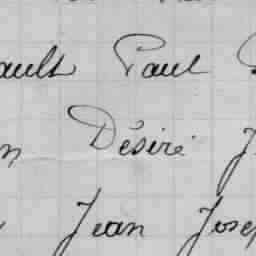 ault Paul
n Désiré J
Jean Josep